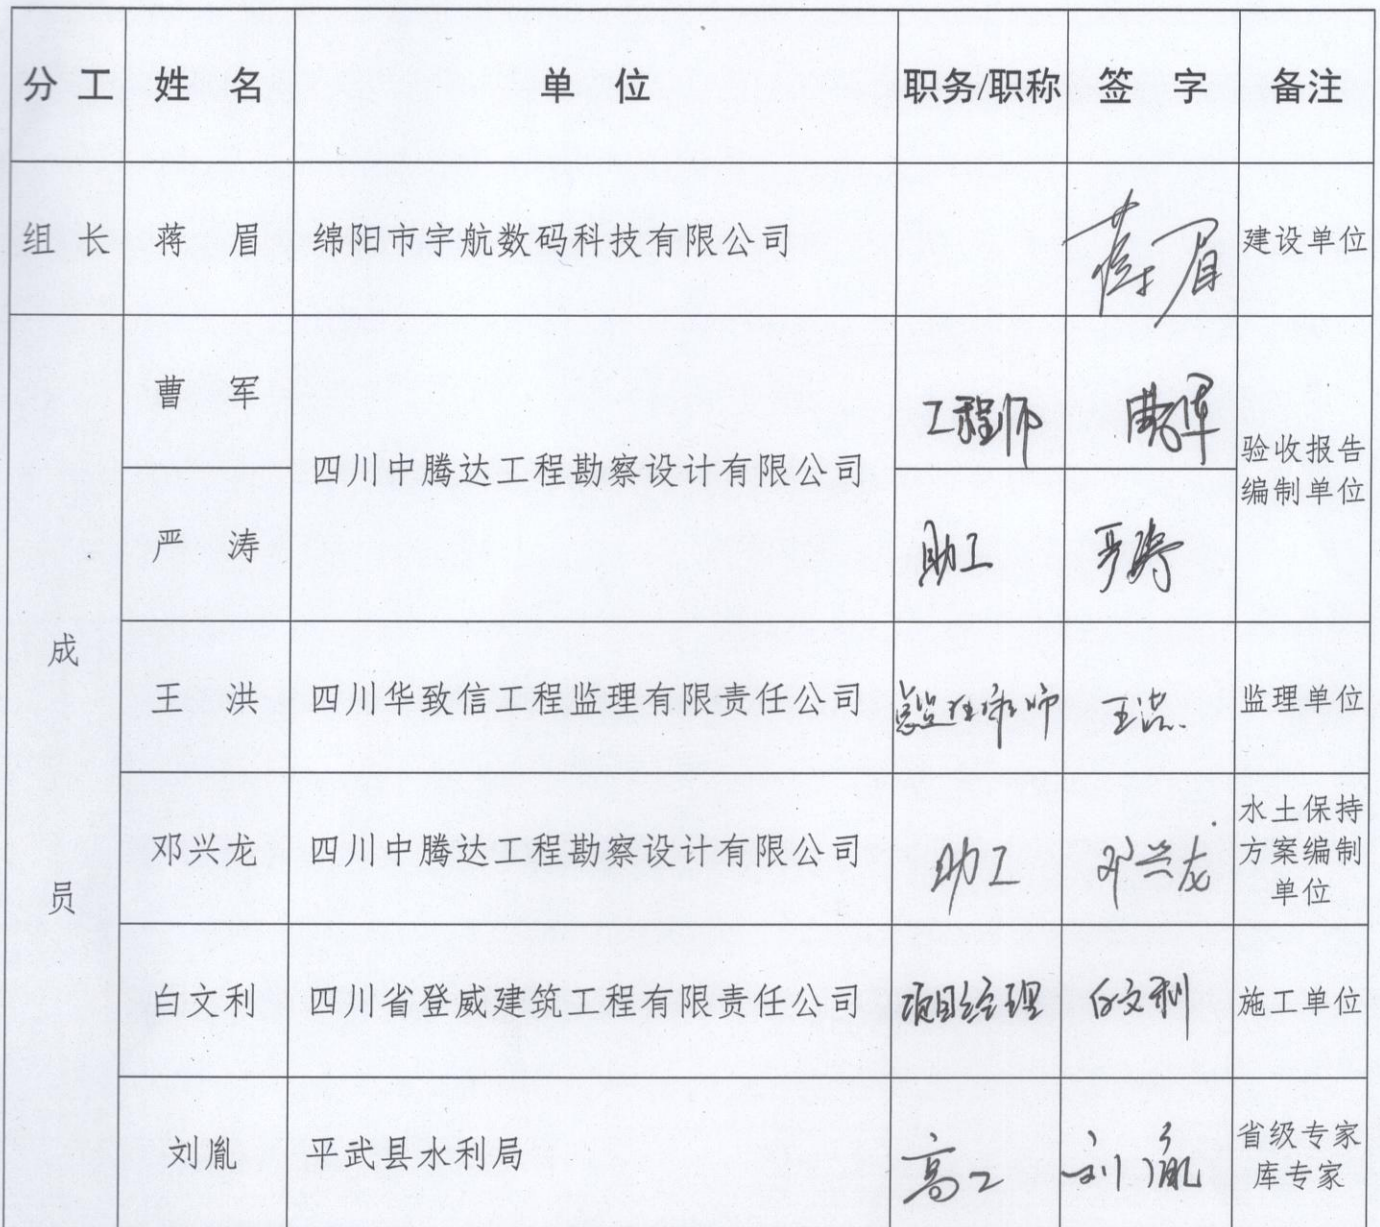 分工 姓名 单位 职务/职称 签字 备注
组长 蒋眉 绵阳市宇航数码科技有限公司 蒋眉 建设单位
曹军 工程师 曹军
四川中腾达工程勘察设计有限公司 验收报告
编制单位
严涛 助工 严涛
成
王洪 四川华致信工程监理有限责任公司 总监理工程师 王洪 监理单位
水土保持
邓兴龙 四川中腾达工程勘察设计有限公司 助工 邓兴龙 方案编制
单位
员
白文利 四川省登威建筑工程有限责任公司 项目经理 白文利 施工单位
刘胤 平武县水利局 高工 刘胤 省级专家
库专家